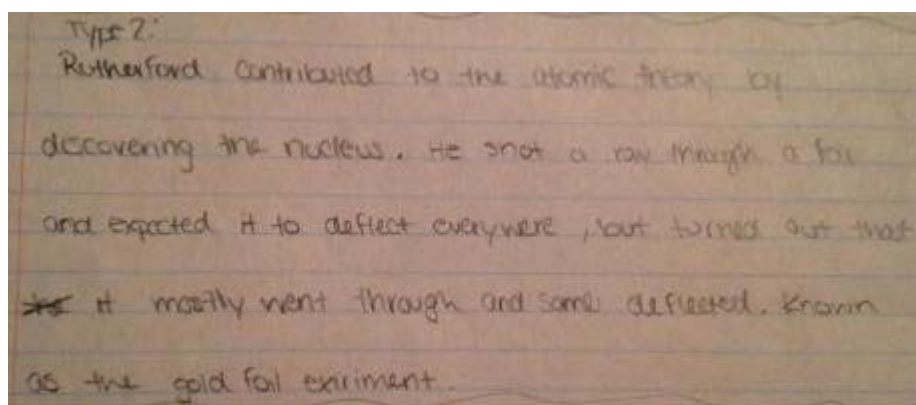 Type 2:
Rutherford contributed to the atomic theory by
discovering the nucleus. He shot a ray through a foil
and expected it to deflect everywere, but turned out that
it mostly went through and some deflected. Known
as the gold foil exriment.